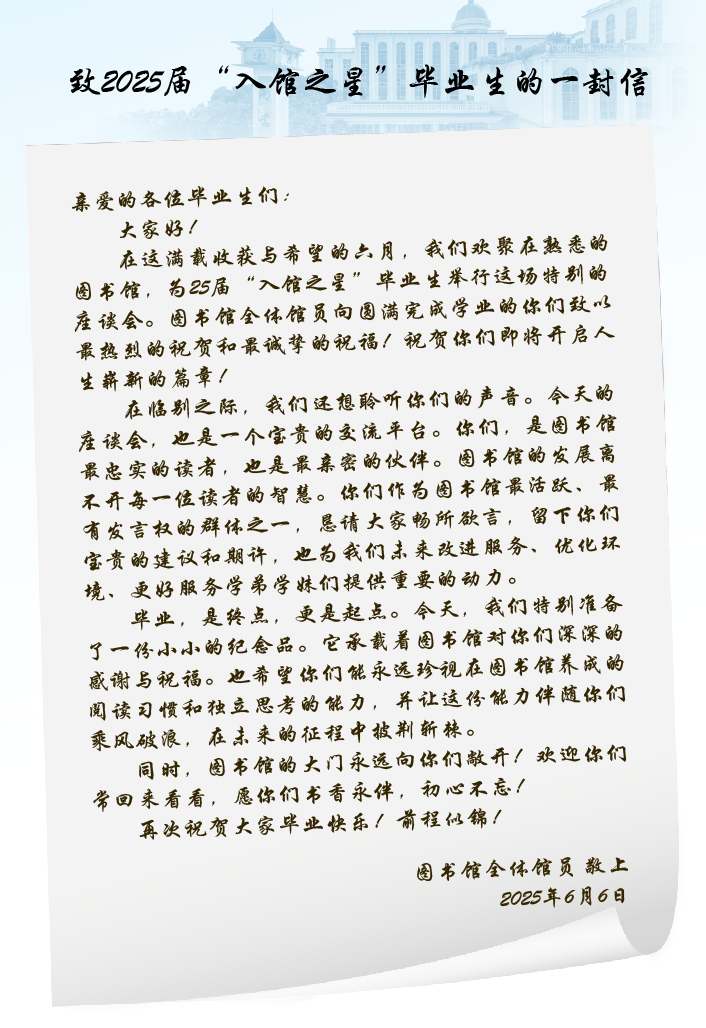 致2025届“入馆之星”毕业生的一封信
亲爱的各位毕业生们：
大家好！
在这满载收获与希望的六月，我们欢聚在熟悉的
图书馆，为25届“入馆之星”毕业生举行这场特别的
座谈会。图书馆全体馆员向圆满完成学业的你们致以
最热烈的祝贺和最诚挚的祝福！祝贺你们即将开启人
生崭新的篇章！
在临别之际，我们还想聆听你们的声音。今天的
座谈会，也是一个宝贵的交流平台。你们，是图书馆
最忠实的读者，也是最亲密的伙伴。图书馆的发展离
不开每一位读者的智慧。你们作为图书馆最活跃、最
有发言权的群体之一，恳请大家畅所欲言，留下你们
宝贵的建议和期许，也为我们未来改进服务、优化环
境、更好服务学弟学妹们提供重要的动力。
毕业，是终点，更是起点。今天，我们特别准备
了一份小小的纪念品。它承载着图书馆对你们深深的
感谢与祝福。也希望你们能永远珍视在图书馆养成的
阅读习惯和独立思考的能力，并让这份能力伴随你们
乘风破浪，在未来的征程中披荆斩棘。
同时，图书馆的大门永远向你们敞开！欢迎你们
常回来看看，愿你们书香永伴，初心不忘！
再次祝贺大家毕业快乐！前程似锦！
图书馆全体馆员 敬上
2025年6月6日